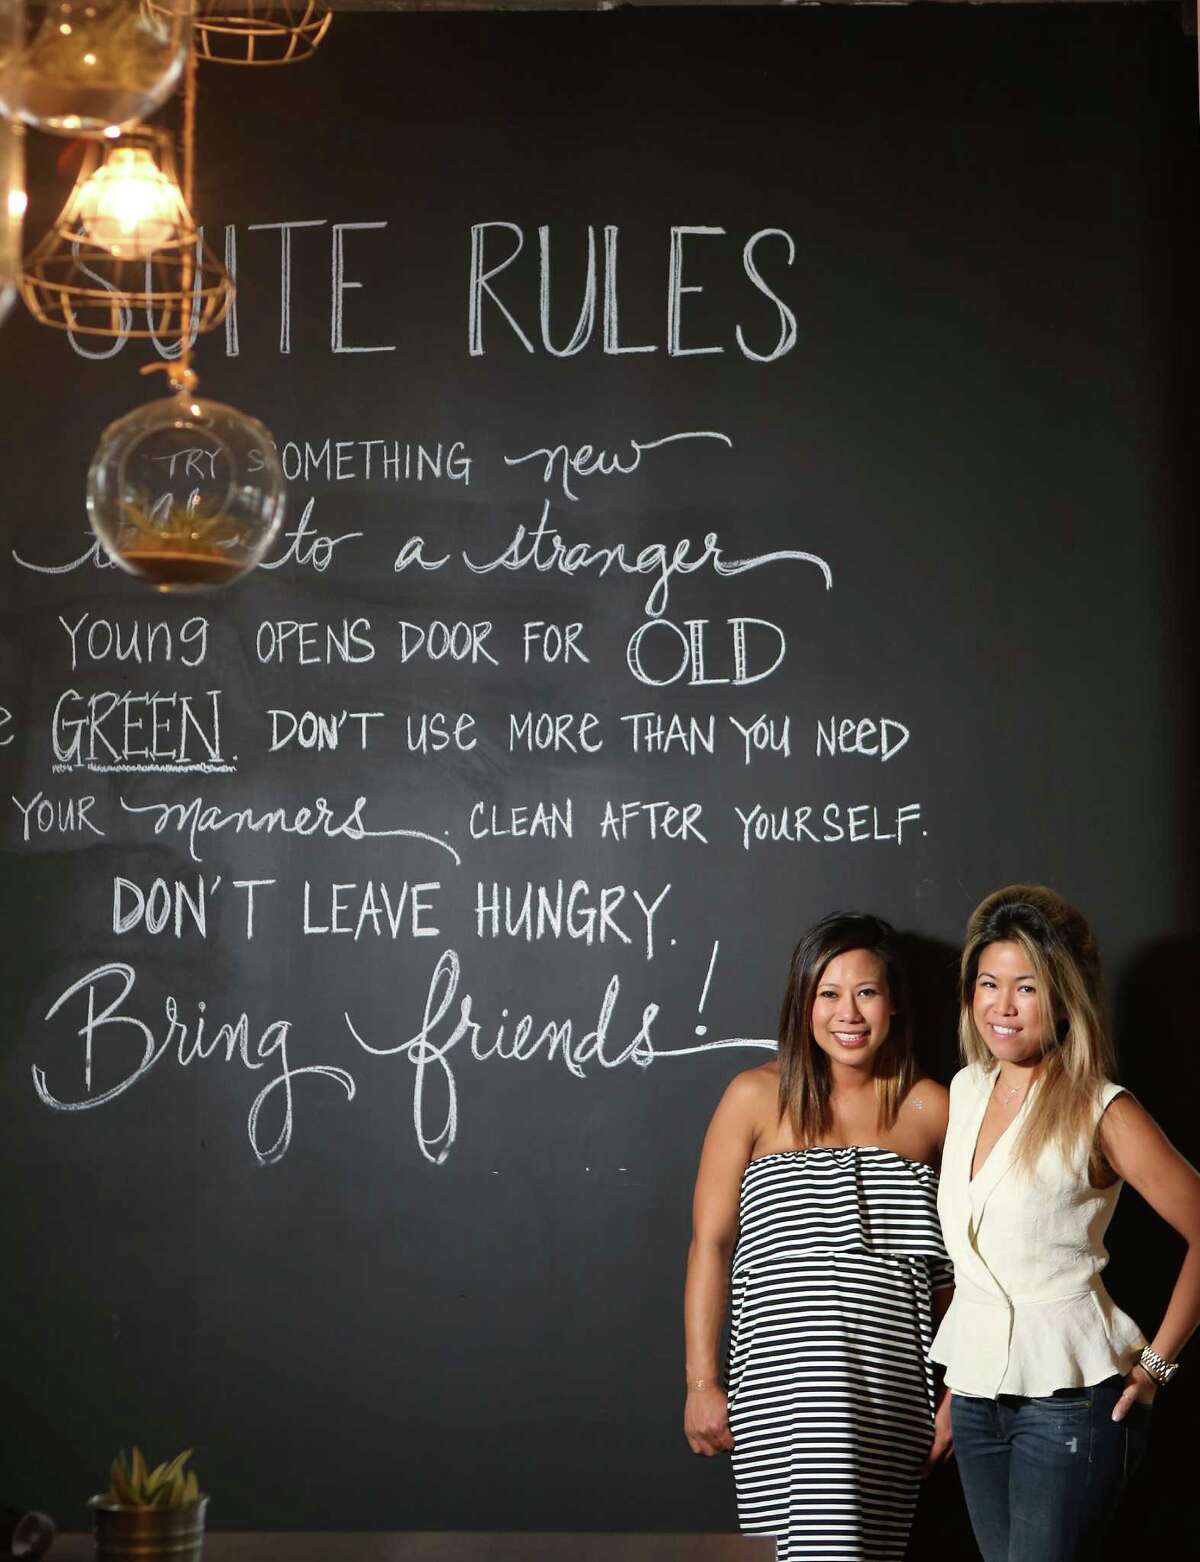 SUITE RULES
TRY SOMETHING new
to a stranger
Young OPENS DOOR FOR OLD
GREEN. DON'T USE MORE THAN YOU NEED
YOUR manners. CLEAN AFTER YOURSELF.
DON'T LEAVE HUNGRY.
Bring friends!